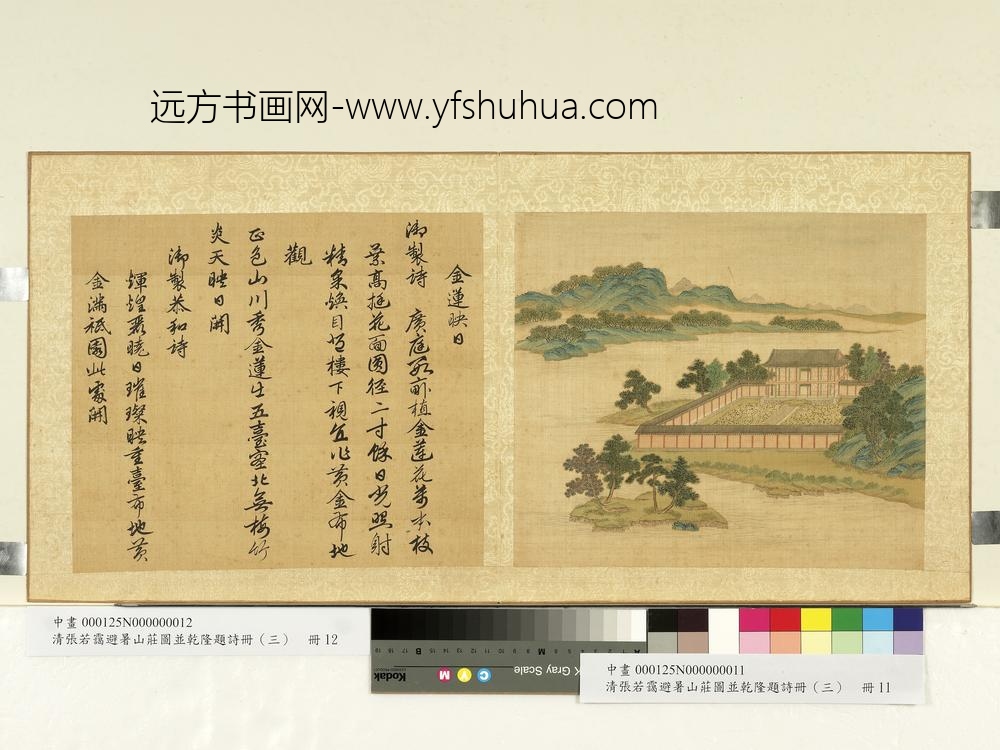 远方书画网-www.yfshuhua.com
金蓮映日
御製詩 廣庭數畝植金蓮花萬本枝
葉高挺花面圓徑二寸餘日光照射
精采煥目登樓下視直作黃金布地
觀
正色山川秀金蓮出五臺塞北無梅竹
炎天映日開
御製恭和詩
輝煌霏曉日璀璨映重臺布地黃
金滿祇園此處開
中畫 000125N000000012
清張若靄避暑山莊圖並乾隆題詩冊（三） 冊 12
中畫 000125N000000011
清張若靄避暑山莊圖並乾隆題詩冊（三） 冊 11
Kodak
M Y C
K Gray Scale
A
M
B
19 18 17 16 15 14 13 12 11 10 9 8